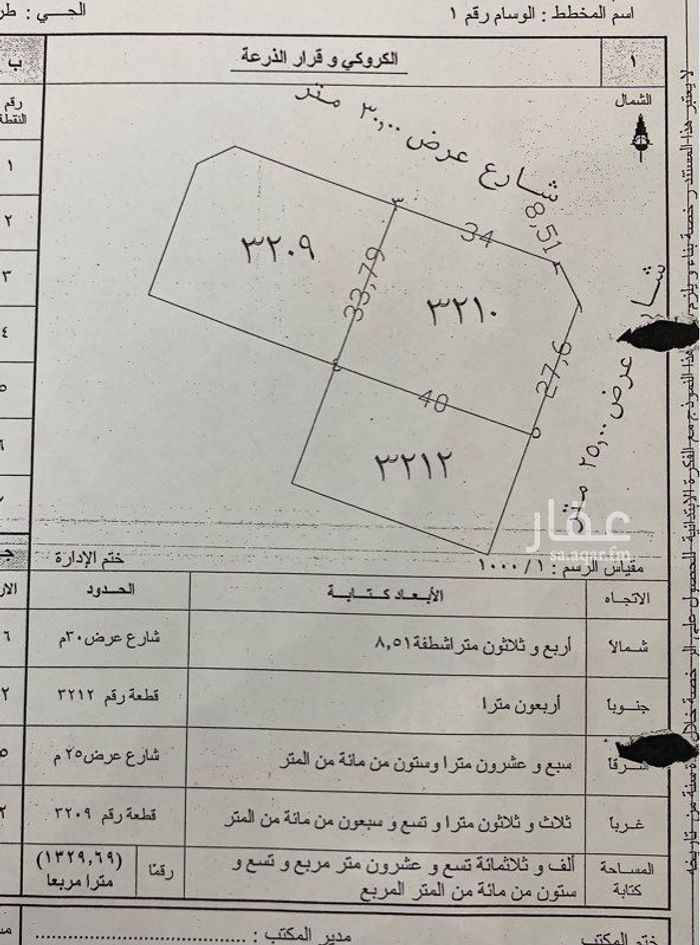 اسم المخطط : الوسام رقم ١
الحـــي :
١
الكروكي و قرار الذرعة
ب
الشمال
رقم النقطة
١
٢
٣
٤
٥
٦
شارع عرض ٣٠,٠٠ متر
شارع عرض ٢٥,٠٠ متر
8,51
34
33,79
27,6
40
٣
٤
٥
٣٢٠٩
٣٢١٠
٣٢١٢
عقار
sa.aqar.fm
مقياس الرسم : ١ / ١٠٠٠
ختم الإدارة
الاتجاه
الأبـعـاد كـتـابـة
الحـدود
شـمـالا
أربع و ثلاثون متراشطفة ٨,٥١
شارع عرض ٣٠م
جنوبا
أربعون مترا
قطعة رقم ٣٢١٢
شرقا
سبع و عشرون مترا وستون من مائة من المتر
شارع عرض ٢٥ م
غـربـا
ثلاث و ثلاثون مترا و تسع و سبعون من مائة من المتر
قطعة رقم ٣٢٠٩
المساحة كتابة
ألف و ثلاثمائة تسع و عشرون متر مربع و تسع و
ستون من مائة من المتر المربع
رقمًا
(١٣٢٩,٦٩)
مترا مربعا
ختم المكتب
مدير المكتب :